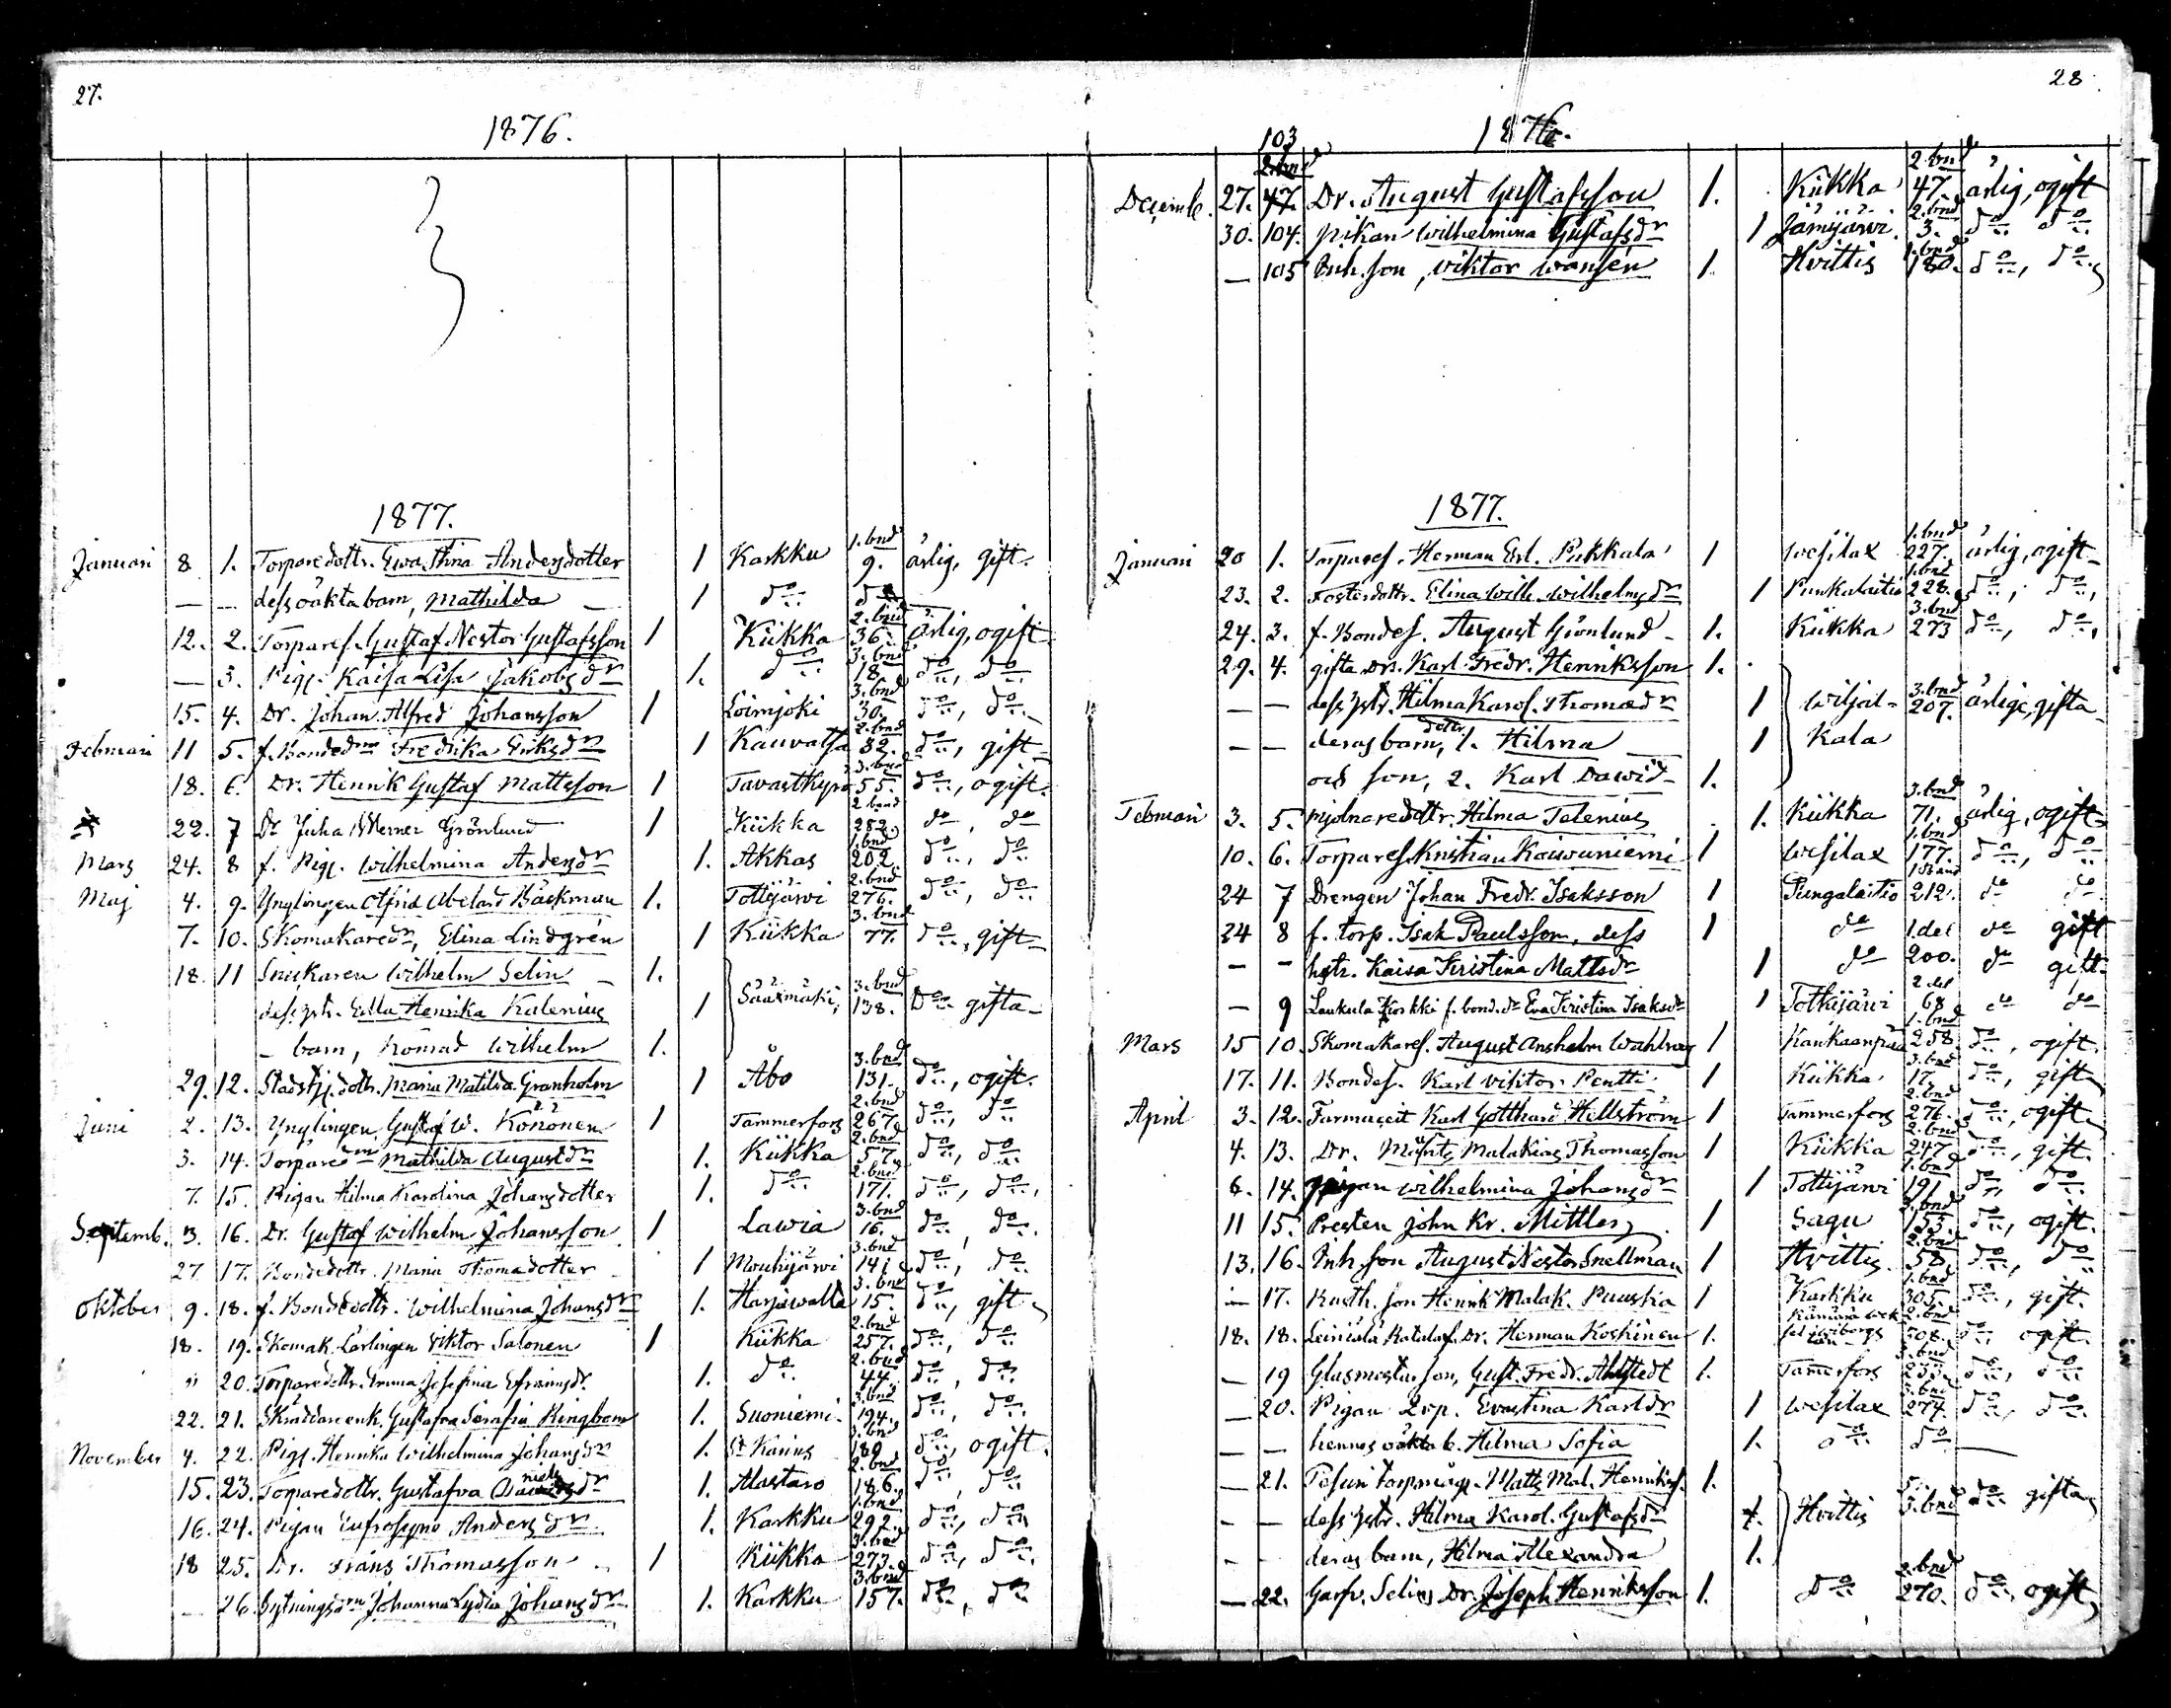 27.
1876.
1877.
Januari 8 1. Torparedottr. Ewa Stina Andersdotter 1 Karkku 1.bnd 9. ärlig, gift.
— — dess oäkta barn, Mathilda — 1 do do
12. 2. Torpares. Gustaf Nestor Gustafsson 1 Kiikka 2.bnd 36. ärlig, ogift
— 3. Pig. Kaisa Lisa Jakobsdr 1. do 3.bnd 18. do, do
15. 4. Dr. Johan Alfred Johansson 1 Loimjoki 3.bnd 30. do, do
Februari 11 5. f. Bondedrn Fredrika Eriksdr 1 Kauvatsa 2.bnd 32. do, gift
18. 6. Dr. Henrik Gustaf Mattsson 1 Tavastkyrö 3.bnd 55. do, ogift.
22. 7 Dr Juha Werner Grönlund 1 Kiikka 2 band 282. do, do
Mars 24. 8 f. Pig. Wilhelmina Andersdr 1. Akkas 1.bnd 202. do, do
Maj 4. 9. Ynglingen Alfrid Abelard Bäckman 1. Tottijärvi 2.bnd 276. do, do
7. 10. Skomakaredr, Elina Lindgrén 1 Kiikka 3.bnd 77. do, gift
18. 11 Snickaren Wilhelm Selin — 1.
dess hstr. Edla Henrika Kalenius 1 Sääxmäki, 3.bnd 138. do gifta
— barn, Konrad Wilhelm 1.
29. 12. dottr. Maria Matilda Granholm 1 Åbo 3.bnd 131. do, ogift.
Juni 2. 13. Ynglingen Gustaf W. Könönen 1 Tammerfors 2.bnd 267. do, do
3. 14. Torparedrn Mathilda Augustdr 1. Kiikka 2.bnd 57. do, do
7. 15. Pigan Hilma Karolina Johansdotter 1. do 2.bnd 171. do, do,
Septemb. 3. 16. Dr. Gustaf Wilhelm Johansson 1 Lawia 3.bnd 16. do, do.
27. 17. Bondedottr. Maria Thomasdotter 1 Mouhijärvi 3.bnd 141 do, do
Oktober 9. 18. f. Bondedottr. Wilhelmina Johansdr 1. Harjawalta 3.bnd 15. do, gift
18. 19. Skomak. Lärlingen Viktor Salonen 1 Kiikka 2.bnd 257. do, do
" 20. Torparedottr. Emma Josefina Efraimsdr. 1. do 2.bnd 44. do, do
22. 21. Skräddareenk. Gustafva Serafia Ringbom 1. Suoniemi 3.bnd 194. do, do
November 4. 22. Pig. Henrika Wilhelmina Johansdr 1. St Karins 3.bnd 189 do, ogift.
15. 23. Torparedottr. Gustafva Danielsdr 1. Alastaro 2.bnd 186. do, do
16. 24. Pigan Eufrosyne Andersdr. 1. Karkku 1.bnd 292. do, do
18 25. Dr. Frans Thomasson 1 Kiikka 3.bnd 273. do, do.
— 26. Sytningsdrn Johanna Lydia Johansdr. 1. Karkku 3.bnd 157. do, do
28
1876.
Decemb. 27. 103 2.bnd 47. Dr. August Gustafsson 1. Kiikka 2.bnd 47. ärlig, ogift
30. 104. Pikan Wilhelmina Gustafsdr 1 Jämijärvi. 2.bnd 3. do do
— 105 Inh. son, Viktor Wansén 1. Hvittis 1.bnd 180. do, do
1877.
Januari 20 1. Torpares. Herman Erl. Pukkala 1 Wesilax 1.bnd 227. ärlig, ogift
23. 2. Fosterdottr. Elina Wilh. Wilhelmsdr 1 Punkalaitio 1.bnd 228. do, do,
24. 3. f. Bondes. August Grönlund — 1. Kiikka 3.bnd 273 do, do,
29. 4. gifta Dr. Karl Fredr. Henriksson 1.
— — dess hstr. Hilma Karol. Thomasdr 1 Wiljak- 3.bnd 207. ärliga, gifta
— — deras barn, dottr. 1. Hilma 1 kala
och son, 2. Karl Dawid 1.
Februari 3. 5. Mjölnaredottr. Hilma Telenius 1. Kiikka 3.bnd 71. ärlig, ogift
10. 6. Torpares. Kristian Koiwuniemi 1 Wesilax 1.bnd 177. do, do
24 7 Drengen Johan Fredr. Isaksson 1 Pungalaitio 1 Band 212. do do
24 8 f. torp. Isak Paulsson, dess 1 do 1.del do gift
- - hstr. Kaisa Kristina Mattsdr 1 do 200. do gift.
— 9 Laukula Koskki f. bond. dr Eva Kristina Isaksdr 1 Tottijärvi 2 del 68 do do
Mars 15 10. Skomakares. August Anshelm Wahlroos 1 Kankaanpää 1.bnd 258. do, ogift.
17. 11. Bondes. Karl Viktor Pentti 1 Kiikka 3.bnd 17. do, gift
April 3. 12. Farmaceit Karl Gotthard Hellström 1 Tammerfors 2.bnd 276. do, ogift
4. 13. Dr. Maurits Malakias Thomasson 1 Kiikka 2.bnd 247 do, gift.
6. 14. Pigan Wilhelmina Johansdr 1 Tottijärvi 1.bnd 191 do, do.
11 15. Presten John Kr. Mittler 1 Sagu 2.bnd 153. do, ogift.
13. 16. Inh. son August Nestor Snellman 1 Hvittis. 2.bnd 58. do, do
— 17. Rusth. son Henrik Malak. Puuska 1 Karkku 1.bnd 305. do, gift.
18. 18. Dr. Herman Koskinen 1. Wiborgs län 2.bnd 308. do ogift.
— 19 Glasmestarson, Gust. Fredr. Ahlstedt 1. Tamerfors 3.bnd do, do
— 20. Pigan Evastina Karlsdr 1 Wesilax 3.bnd 274. do, do.
— — hennes oäkta b. Hilma Sofia 1. do do —
— 21. Matts Mal. Henriks. 1.
— — dess hstr. Hilma Karol. Gustafsdr 1. Hvittis 3.bnd do gifta
- - deras barn, Hilma Alexandra 1.
— 22. Garfv. Selins Dr. Joseph Henriksson 1. do 2.bnd 270. do, ogift